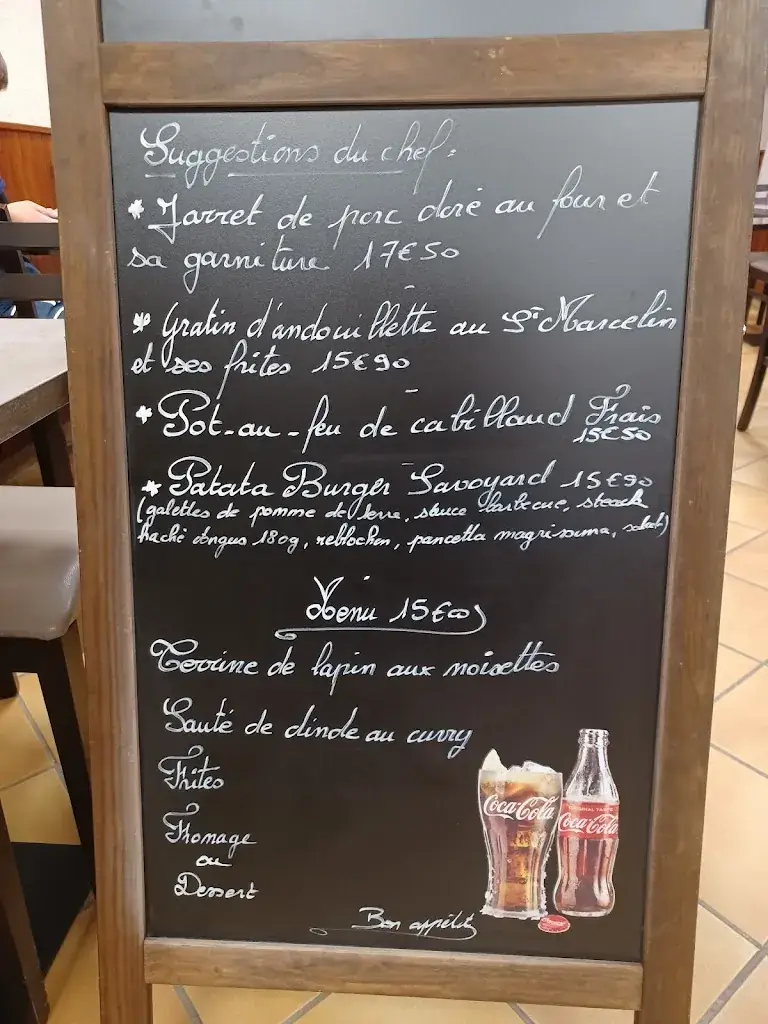 Suggestions du chef :
* Jarret de porc doré au four et
sa garniture 17€50
* Gratin d'andouillette au St Marcelin
et ses frites 15€90
* Pot-au-feu de cabillaud Frais
15€50
* Patata Burger Savoyard 15€90
(galettes de pomme de terre, sauce barbecue, steack
haché angus 180g, reblochon, pancetta magrissima, salad)
Menu 15€00
Terrine de lapin aux noisettes
Sauté de dinde au curry
Frites
Fromage
ou
Dessert
Coca-Cola
ORIGINAL TASTE
Coca-Cola
Bon appétit